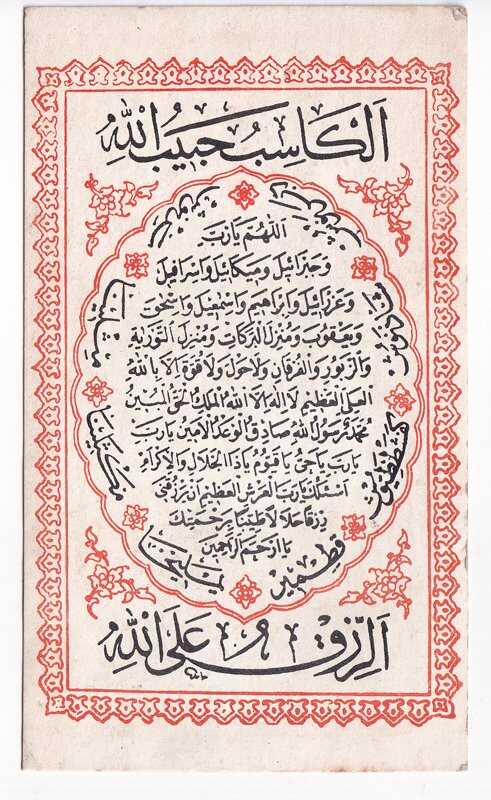 اَلْكَاسِبُ حَبِيبُ اللهِ
اَللّٰهُمَّ يَارَبِّ
وَجَبْرَائِيلَ وَمِيكَائِيلَ وَاِسْرَافِيلَ
وَعَزْرَائِيلَ وَاِبْرَاهِيمَ وَاِسْمٰعِيلَ وَاِسْحٰقَ
وَيَعْقُوبَ وَمُنْزِلَ الْبَرَكَاتِ وَمُنْزِلَ التَّوْرٰيةِ
وَالزَّبُورِ وَالْفُرْقَانِ وَلَاحَوْلَ وَلَاقُوَّةَ اِلَّا بِاللهِ
الْعَلِىِّ الْعَظِيمِ لَا اِلٰهَ اِلَّا اللهُ الْمَلِكُ الْحَقُّ الْمُبِينُ
مُحَمَّدٌ رَسُولُ اللهِ صَادِقُ الْوَعْدِ الْاَمِينُ يَارَبِّ
يَارَبِّ يَاحَىُّ يَاقَيُّومُ يَاذَا الْجَلَالِ وَالْاِكْرَامِ
اَسْئَلُكَ يَارَبَّ الْعَرْشِ الْعَظِيمِ اَنْ تَرْزُقَنِى
رِزْقًا حَلَالًا طَيِّبًا بِرَحْمَتِكَ
يَا اَرْحَمَ الرَّاحِمِينَ
يمليخا
مكسلينا
مثلينا
كفشططيوش
قطمير
اَلرِّزْقُ عَلَى اللهِ